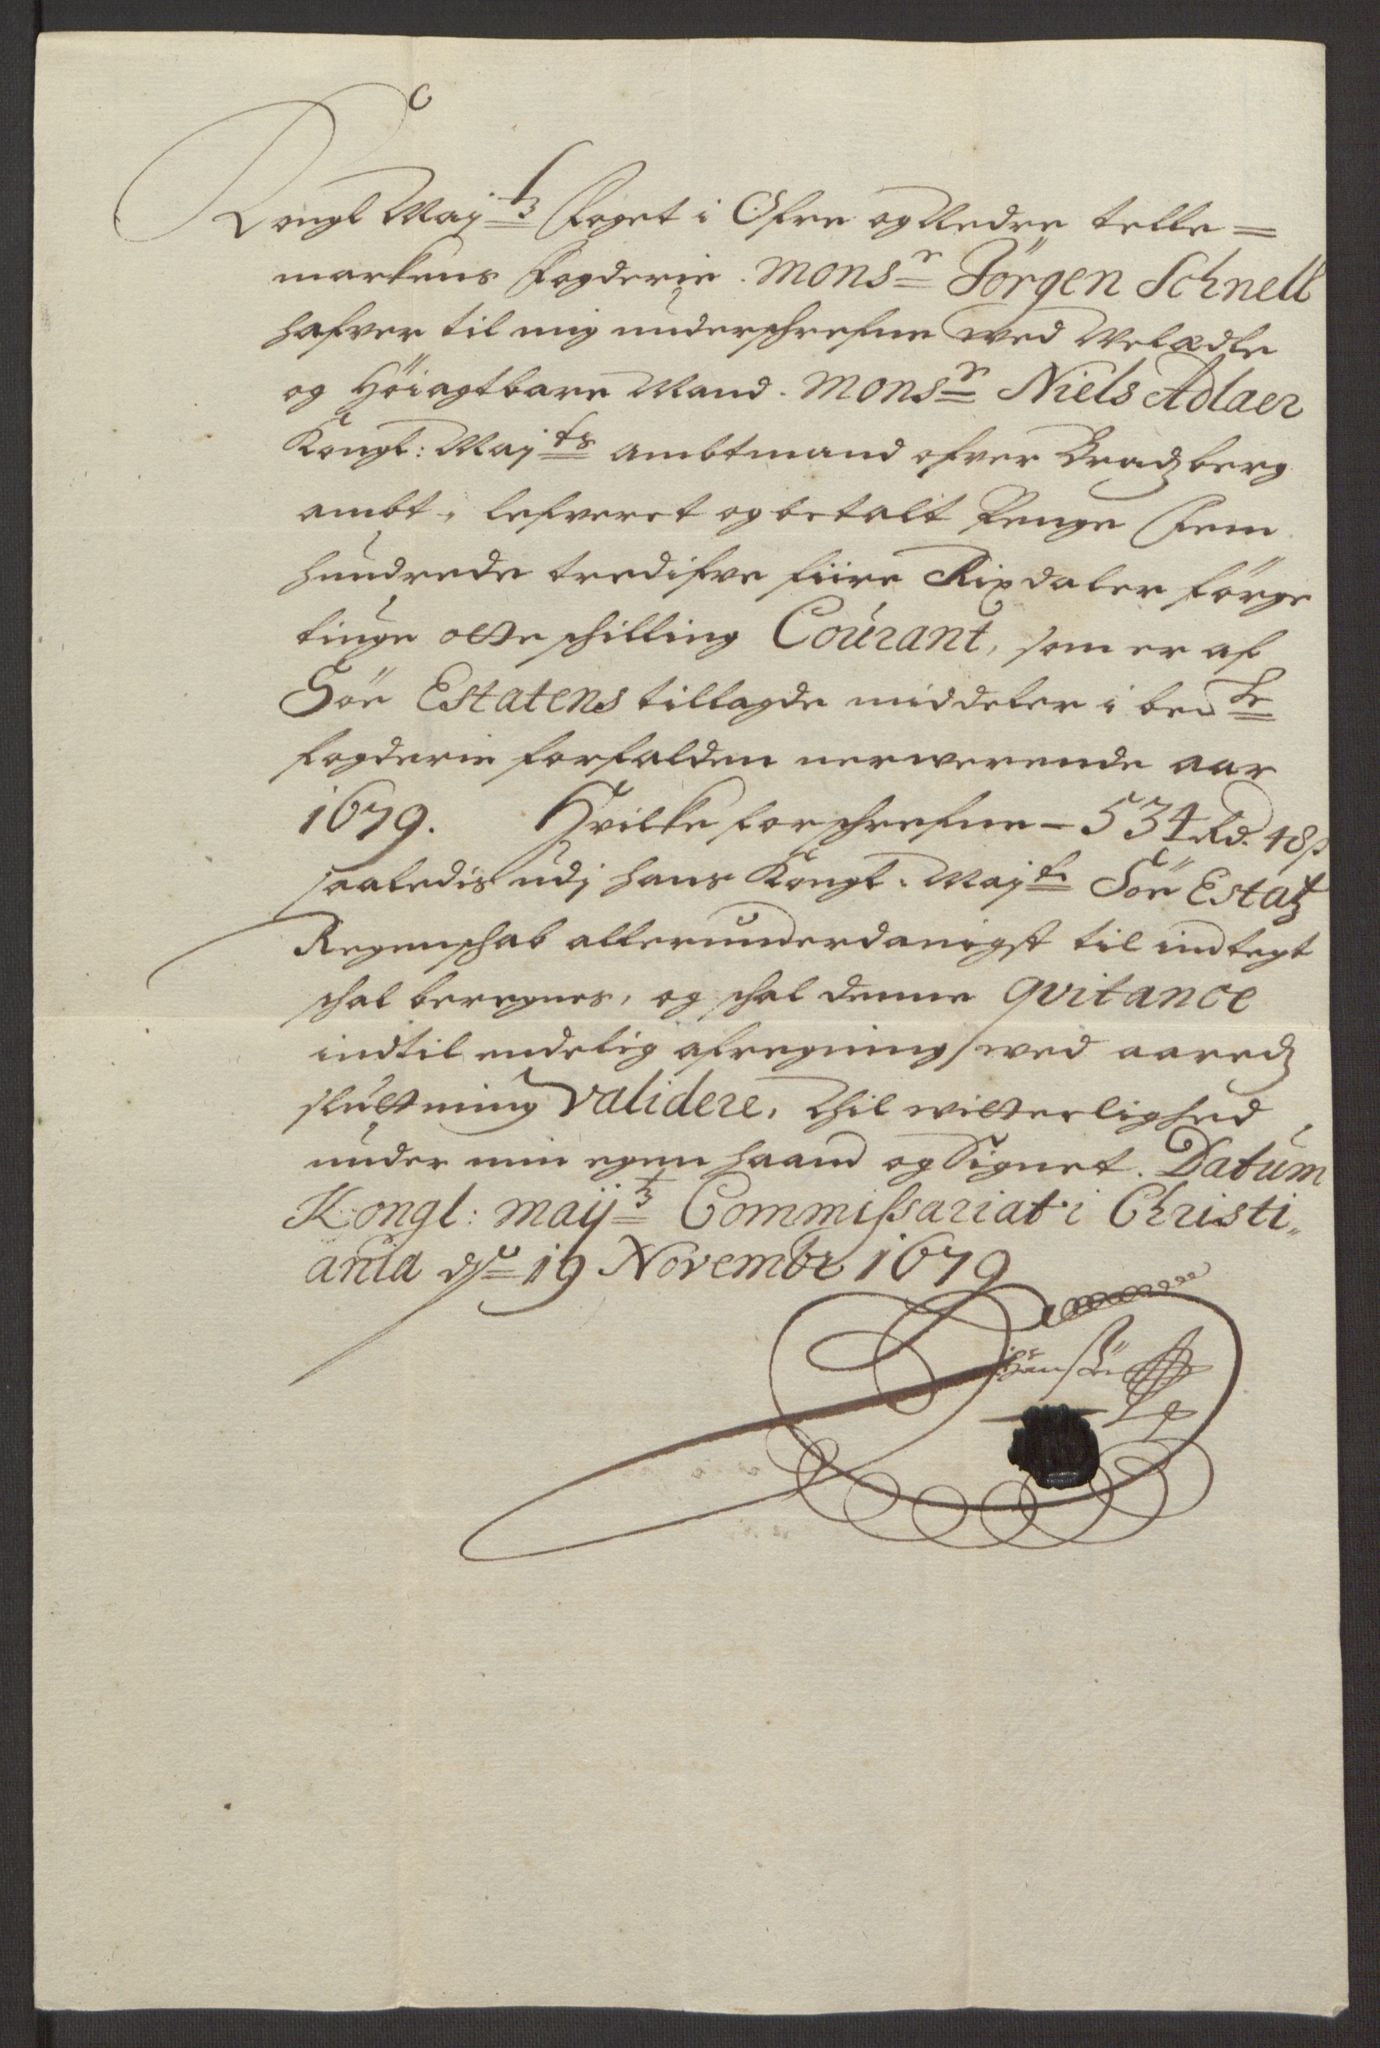 Kongl Maytz Foget i Øfre og Nedre telle=
markens Fogderie. Monsr Jörgen Schnell
hafver til mig underschrefne wed Welædle
og Höiagtbare Mand. Monsr Niels Adlaer
Kongl: Mayts ambtmand ofver Bradsberg
ambt, lefveret og betalt Penge Fem
hundrede tredifve fiire Rixdaler förge
tiuge otte schilling Courant, som er af
Söe Estatens tillagde middeler i bente
fogderie forfalden nerwerende aar
1679. Hvilke forschrefne – 534 Rd. 48 s
saaledis udj hans Kongl. Mayts Söe Estatz
Regenschab allerunderdanigst til indtegt
schal beregnes, og schal denne qvitance
indtil endelig afregning wed aaredz
sluttning validere, Thil witterlighed
under min egen haand og Signet. Datum
Kongl: mayttz Commissariat i Christi=
ania dn 19 Novembr 1679